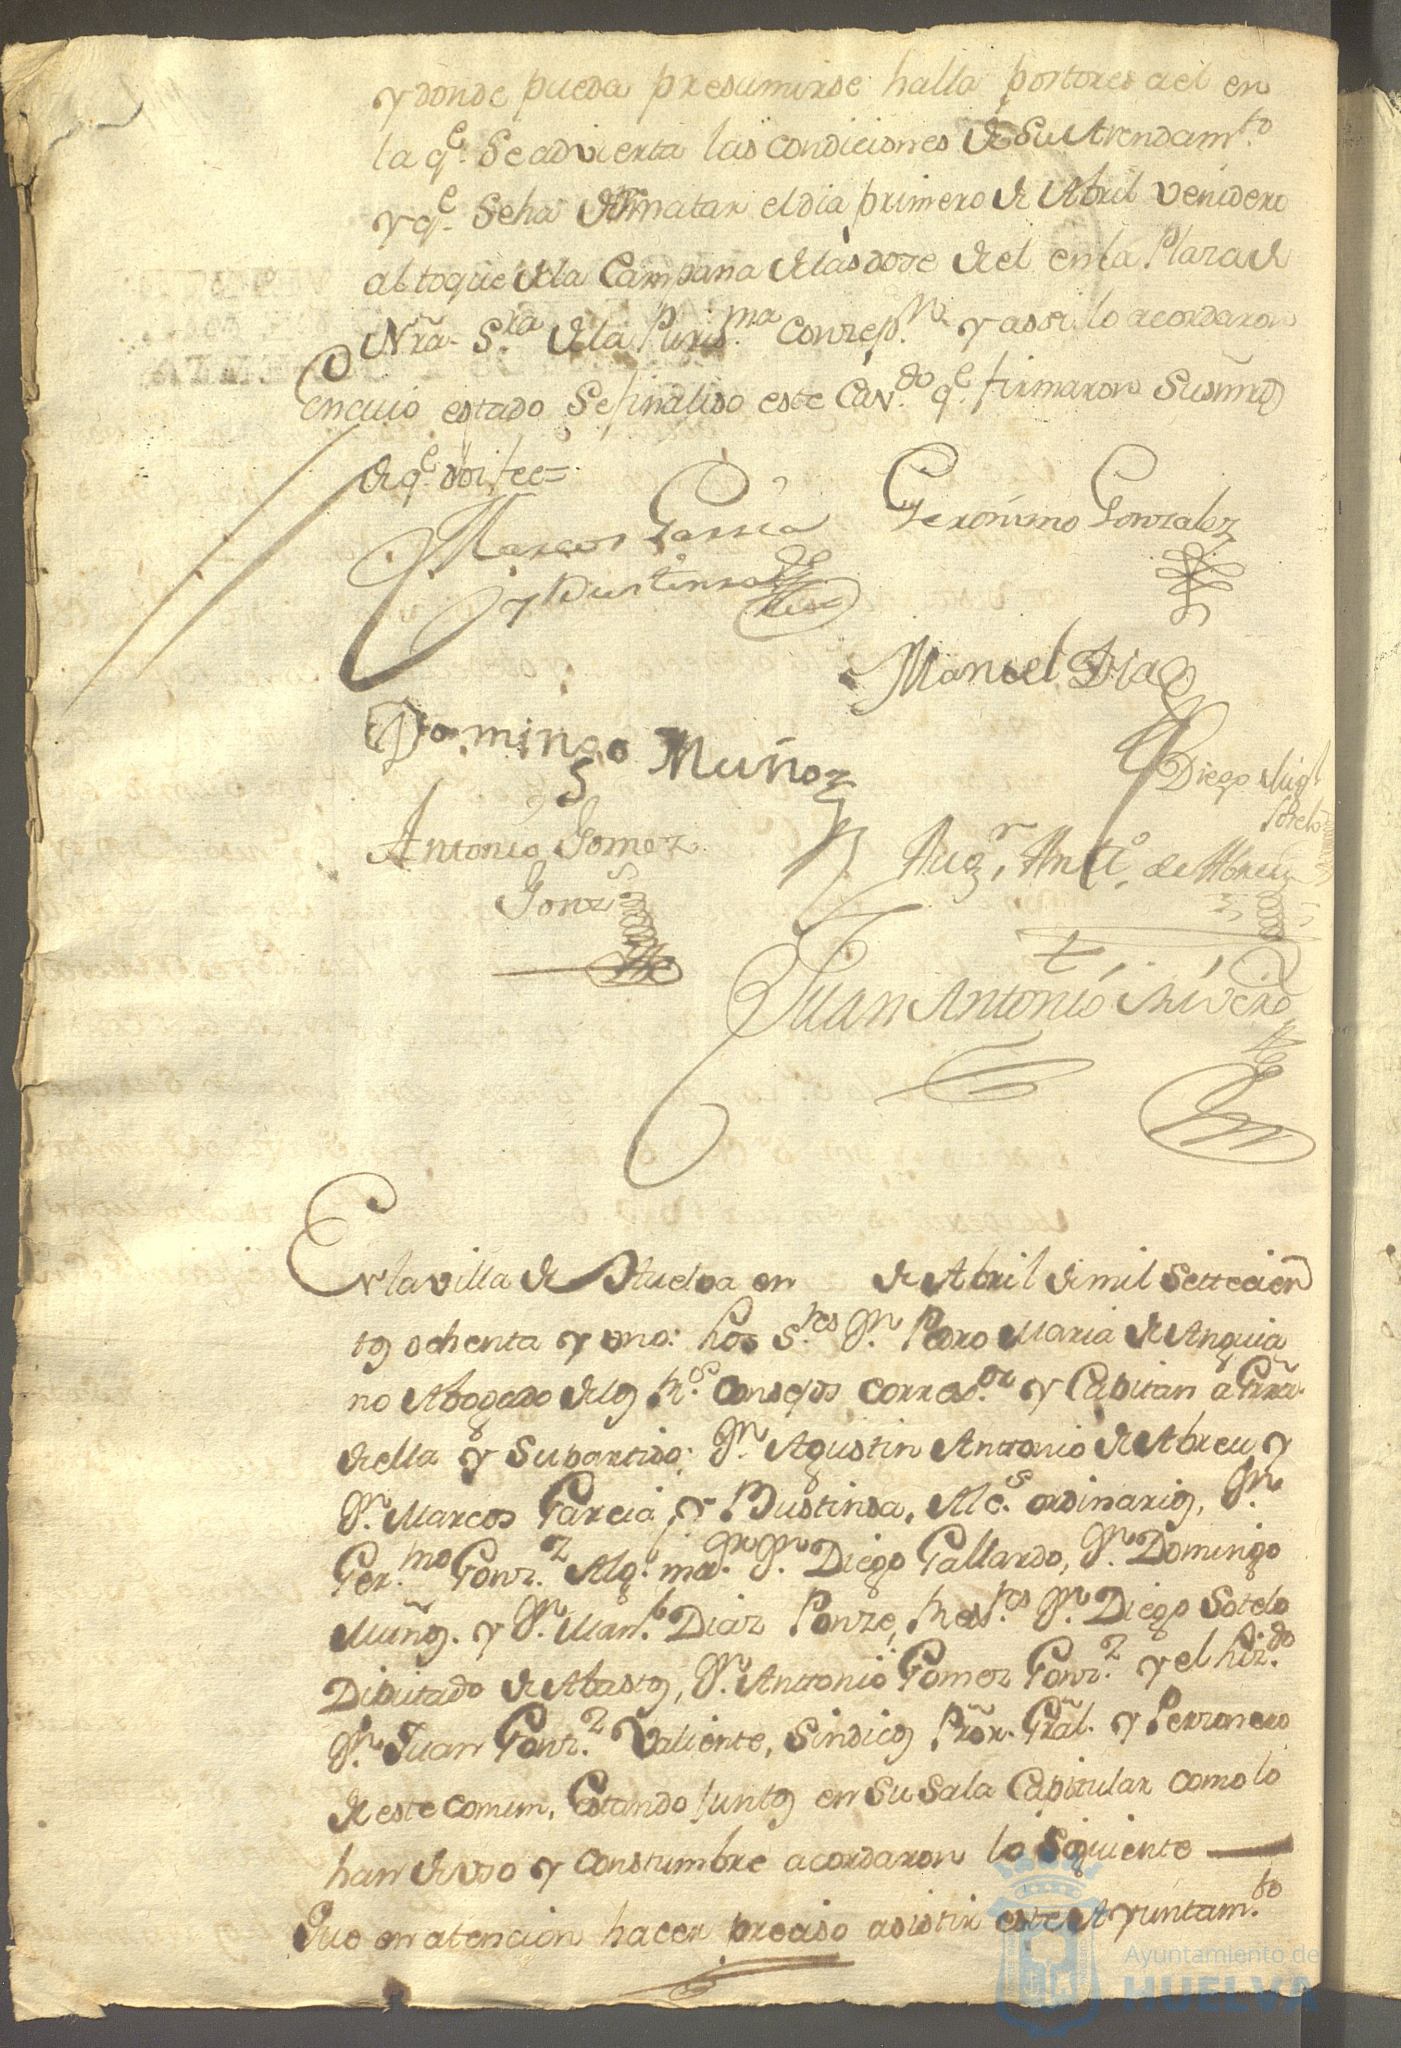 y donde pueda presumirse halla postores a el en
la q.e se advierta las condiciones de su Arrendam.to
y q.e se ha de rematar el dia primero de Abril venidero
al toque de la Campana de las doze de el en la Plaza de
Nrã. S.ra de la Puris.ma Conzep.n y assi lo acordaron
En cuio estado se finaliso este Cav.do q.e firmaron sus mrd
de q.e doi fee=
Marcos Garcia
y Bustinsa
Geronimo Gonzalez
Manuel Diaz
Domingo Muñoz
Diego Migl
Sotelo
Antonio Gomez
Gonz
Aug.n Ant.o de Abreu
Juan Antonio Rivero
En la villa de Huelva en de Abril de mil settecien
tos ochenta y uno: Los S.res D.n Pedro Maria de Anguia
no Abogado de los R.s Consejos Correg.or y Capitan a Grrã.
de ella y su partido; D.n Agustin Antonio de Abreu y
D.n Marcos Garcia, y Bustinsa, Alc.s ordinarios, D.n
Ger.mo Gonz.z Alg. ma.or D.n Diego Gallardo, D.n Domingo
Muños. y D.n Man.l Diaz Ponze, Reg.res D.n Diego Sotelo
Diputado de Abastos, D.n Antonio Gomez Gonz.z y el liz.do
D.n Juan Gonz.z Valiente, Sindicos Prõr. Grãl. y Perzonero
de este comun, Estando juntos en su sala Capitular como lo
han de uso y constumbre acordaron lo siguiente —
Que en atencion hacer preciso asistir este Ayuntam.to
Ayuntamiento de
HUELVA